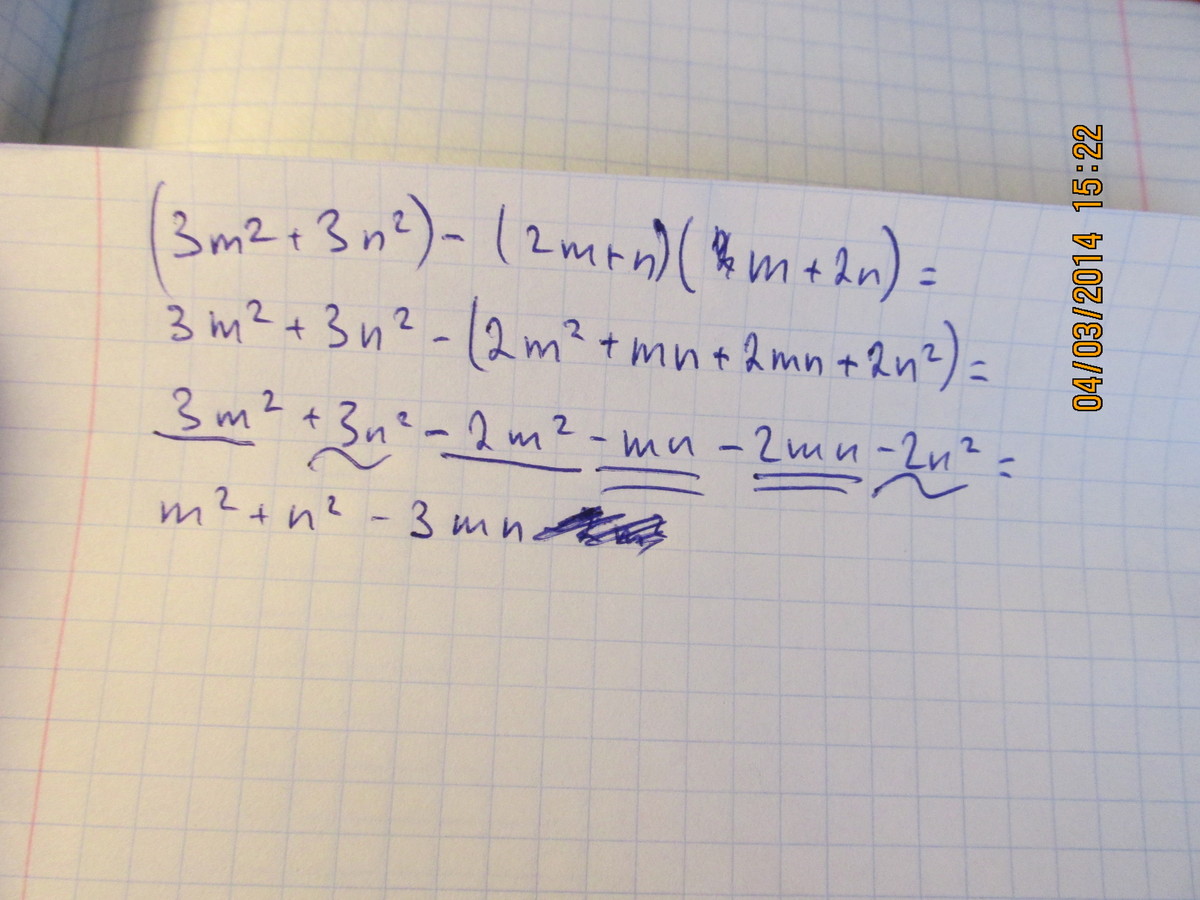 (3m² + 3n²) - (2m+n)(m + 2n) =
3m² + 3n² - (2m² + mn + 2mn + 2n²) =
3m² + 3n² - 2m² - mn - 2mn - 2n² =
m² + n² - 3mn
04/03/2014 15:22